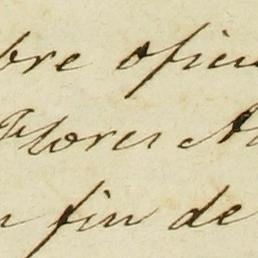 bre oficio
Flores A
n fin de